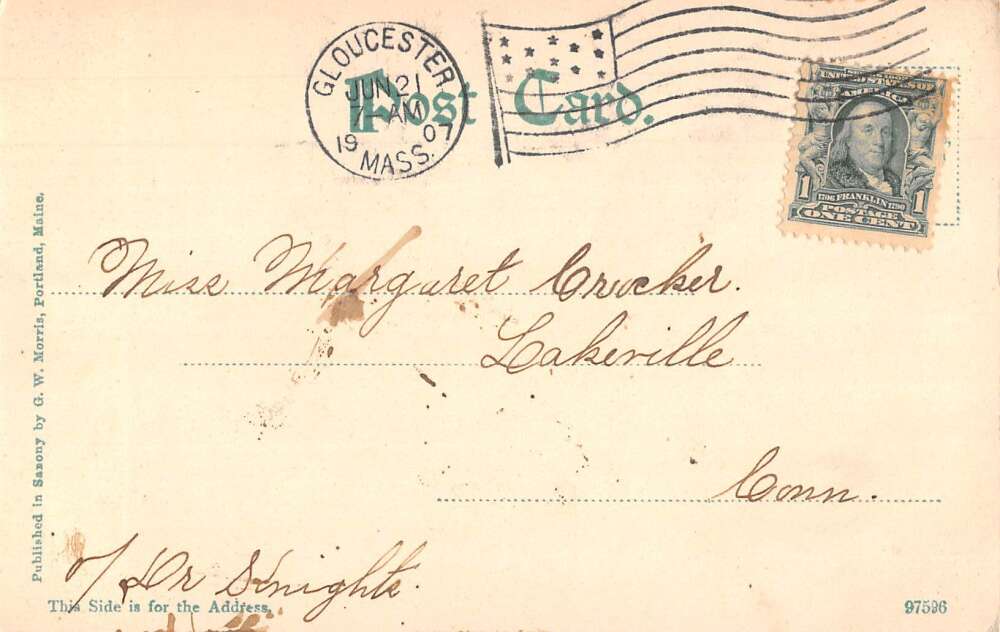 GLOUCESTER
JUN 21
7-AM
1907
MASS.
Post Card.
UNITED STATES OF
AMERICA
1 1706 FRANKLIN 1790 1
POSTAGE
ONE CENT
Miss Margaret Crocker.
Lakeville
Conn.
c/ Dr Knights.
This Side is for the Address.
97596
Published in Saxony by G. W. Morris, Portland, Maine.